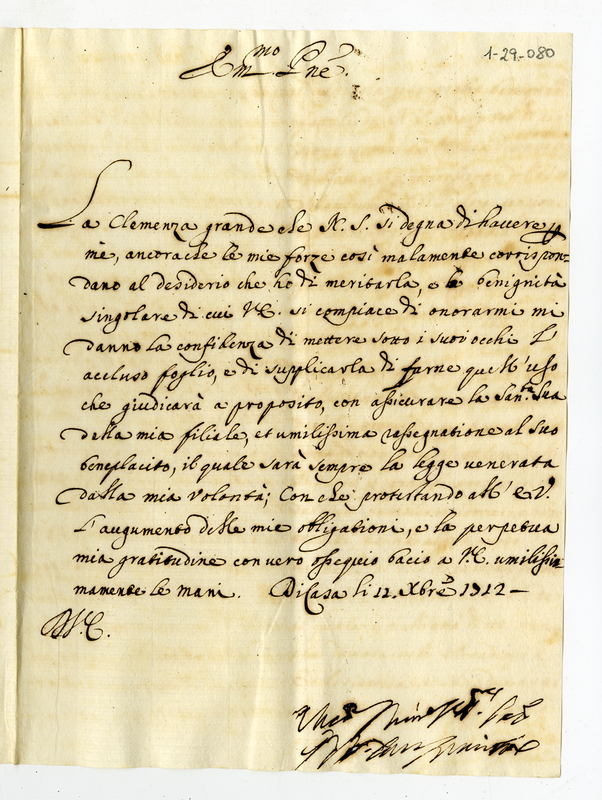 1-29-080
Em.mo P.ne
La Clemenza grande che N. S. si degna di havere p
me, ancorache le mie forze così malamente corrispon-
dano al desiderio che ho di meritarla, e la benignità
singolare di cui V.E. si compiace di onorarmi mi
danno la confidenza di mettere sotto i suoi occhi l'
accluso foglio, e di supplicarla di farne quell'uso
che giudicarà a proposito, con assicurare la San.tà Sua
della mia filiale, et umilissima rassegnatione al suo
beneplacito, il quale sarà sempre la legge venerata
dalla mia volontà; Con che protestando all'E.V.
l'augumento delle mie obligationi, e la perpetua
mia gratitudine con vero ossequio bacio a V.E. umilissi-
mamente le mani. Di Casa li 12. Xbre 1712